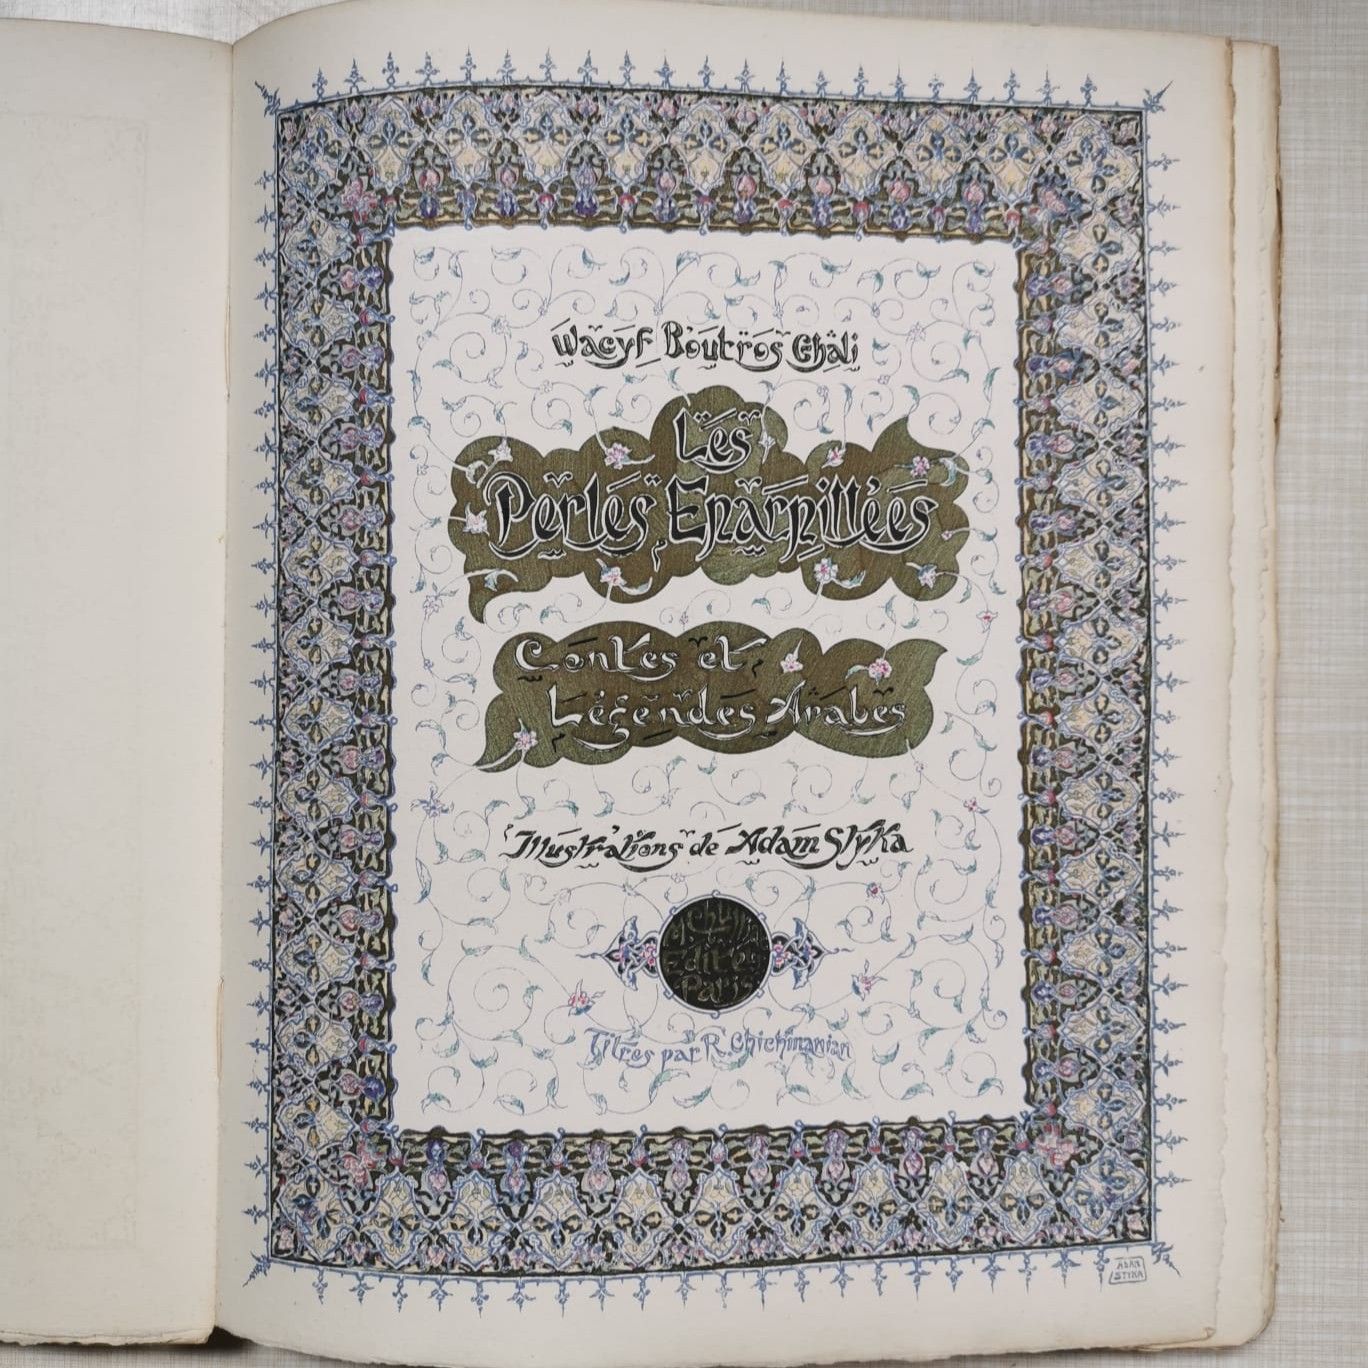 Wacyf Boutros Ghali
Les
Perles Eparpillées
Contes et
Légendes Arabes
Illustrations de Adam Styka
Edite
Paris
Titres par R. Chichmanian
ADAM
STYKA